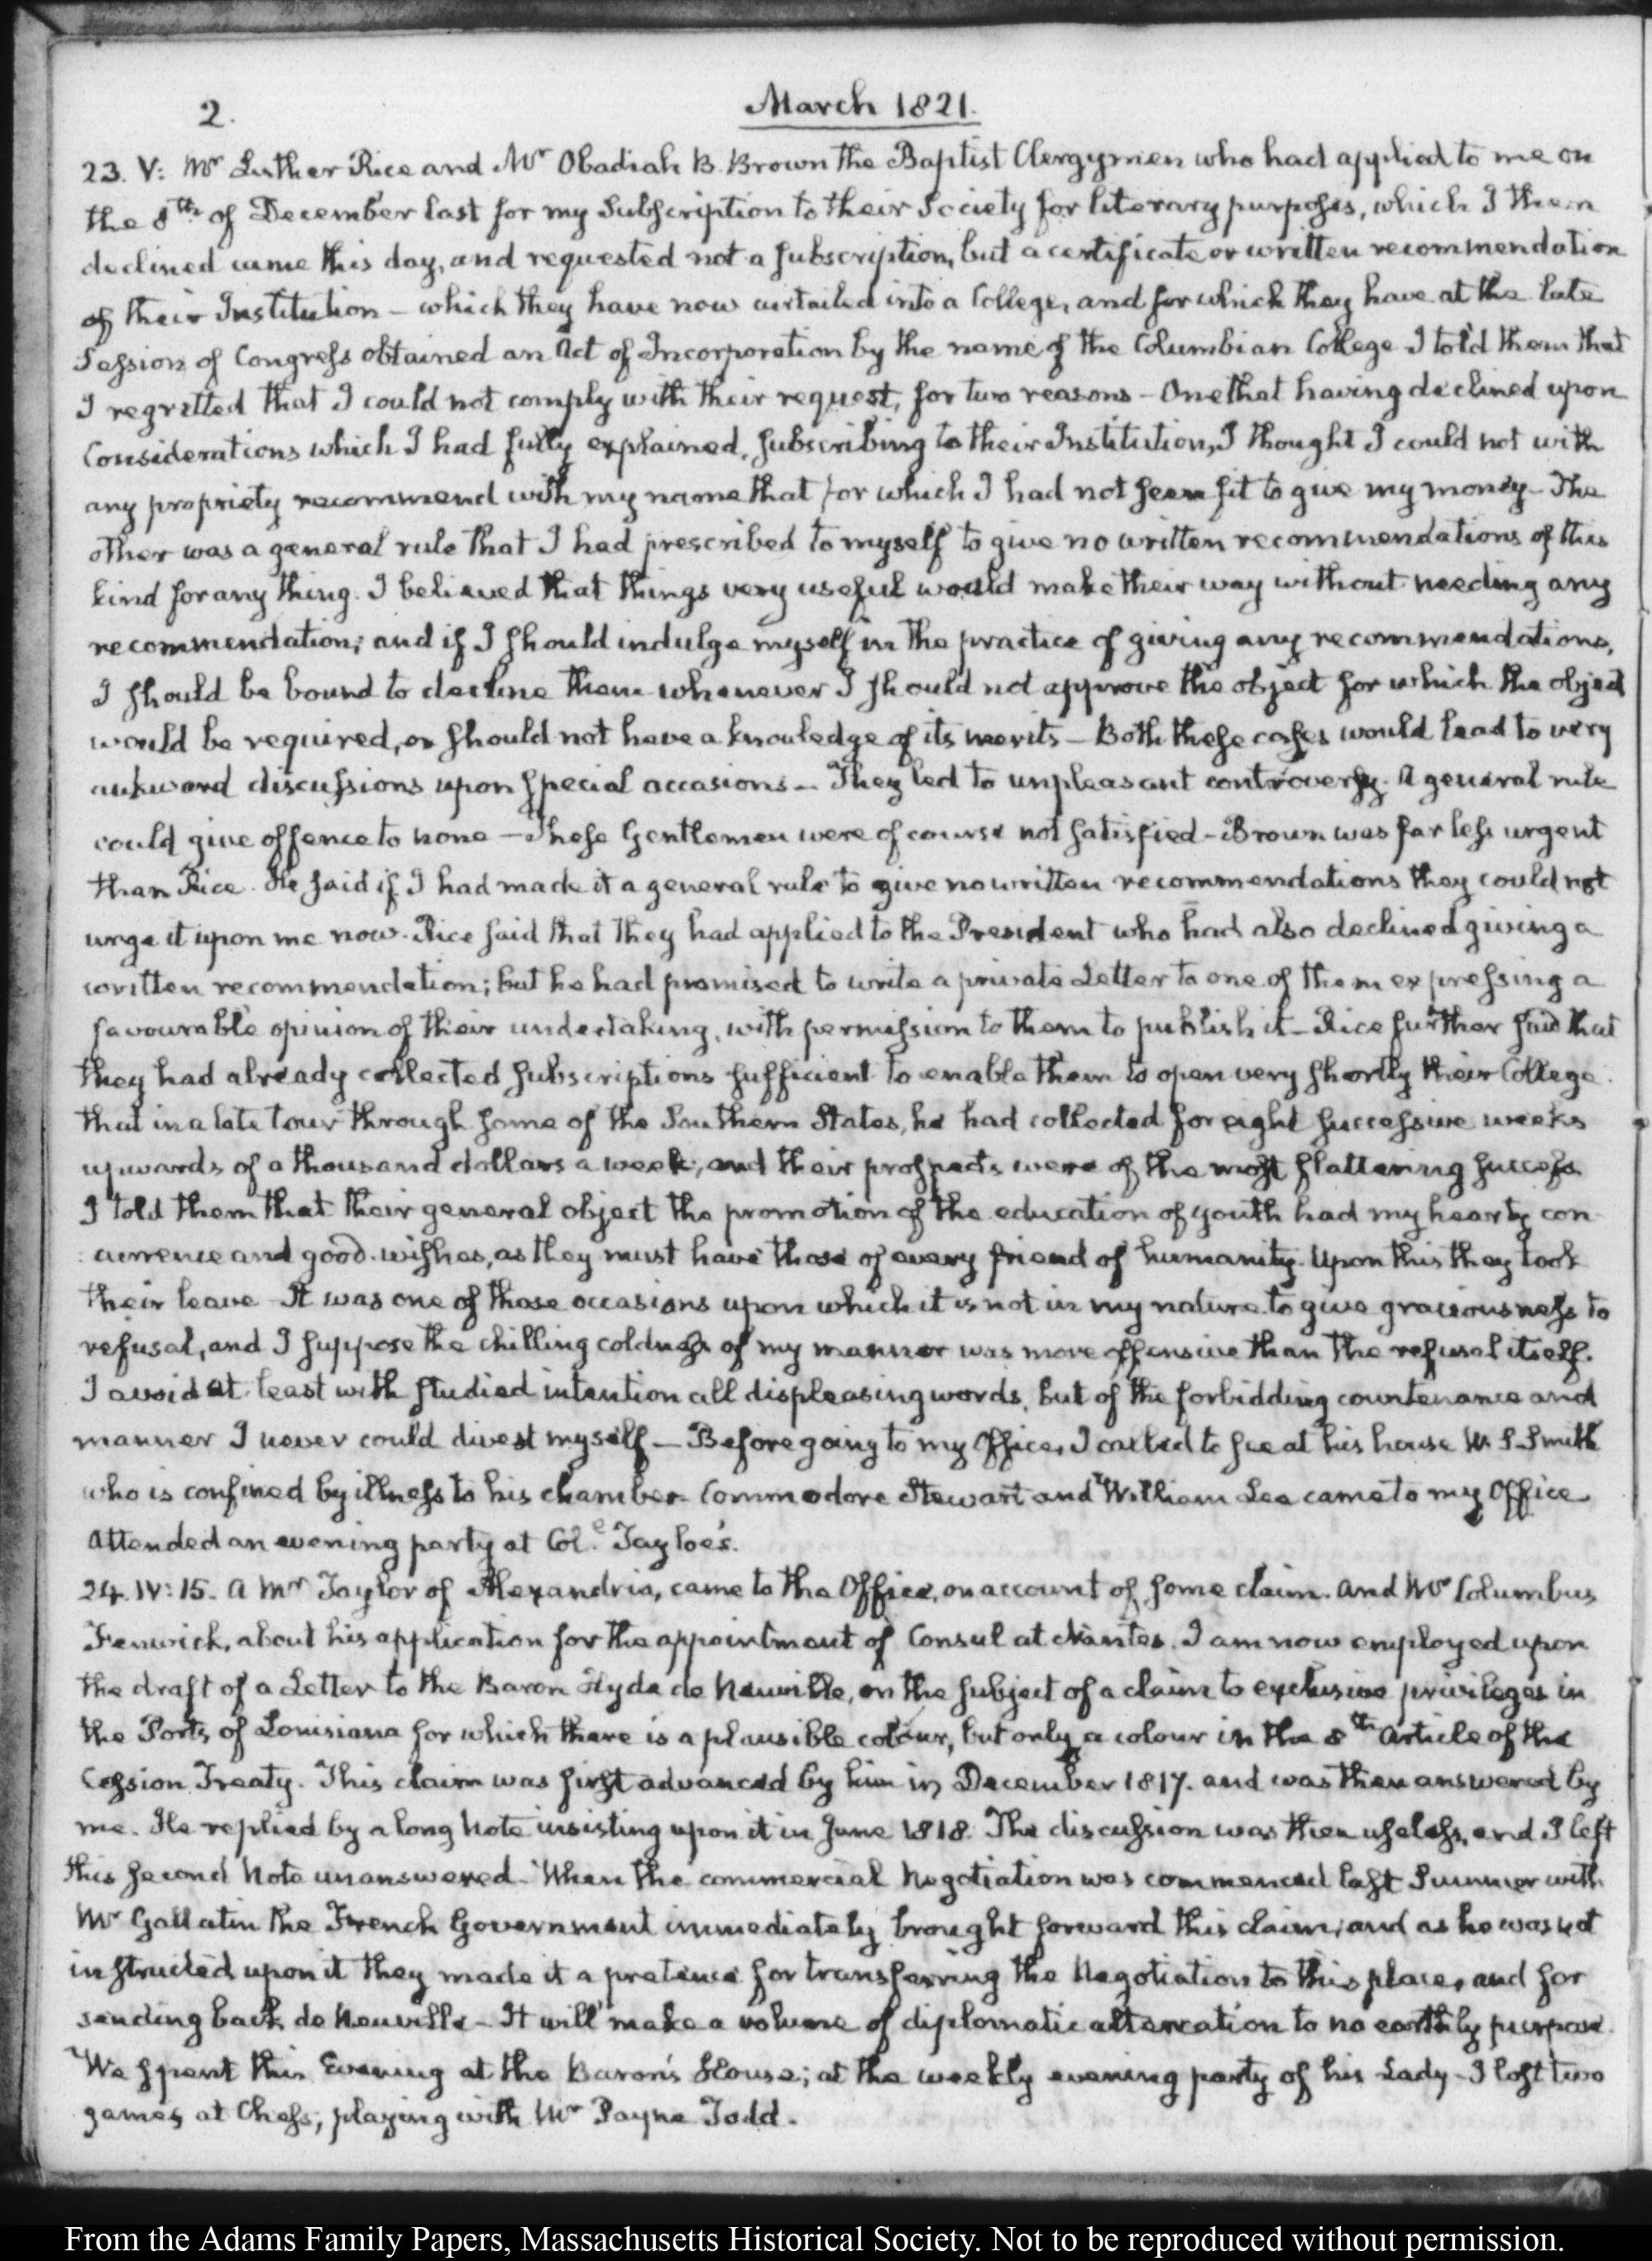 2.
March 1821.
23. V: Mr Luther Rice and Mr Obadiah B. Brown the Baptist Clergymen who had applied to me on
the 8th of December last for my Subscription to their Society for literary purposes, which I then
declined came this day, and requested not a subscription, but a certificate or written recommendation
of their Institution – which they have now curtailed into a College, and for which they have at the late
Session of Congress obtained an Act of Incorporation by the name of the Columbian College I told them that
I regretted that I could not comply with their request, for two reasons – One that having declined upon
Considerations which I had fully explained, subscribing to their Institution, I thought I could not with
any propriety recommend with my name that for which I had not seen fit to give my money – The
other was a general rule that I had prescribed to myself to give no written recommendations of this
kind for any thing. I believed that things very useful would make their way without needing any
recommendation; and if I should indulge myself in the practice of giving any recommendations,
I should be bound to decline them whenever I should not approve the object for which the object
would be required, or should not have a knowledge of its merits – Both these cases would lead to very
aukward discussions upon special occasions – They led to unpleasant controversy. A general rule
could give offence to none – These Gentlemen were of course not satisfied – Brown was far less urgent
than Rice. He said if I had made it a general rule to give no written recommendations they could not
urge it upon me now. Rice said that they had applied to the President who had also declined giving a
written recommendation; but he had promised to write a private Letter to one of them expressing a
favourable opinion of their undertaking, with permission to them to publish it – Rice further said that
they had already collected subscriptions sufficient to enable them to open very shortly their College.
that in a late tour through some of the Southern States, he had collected for eight successive weeks
upwards of a thousand dollars a week, and their prospects were of the most flattering success.
I told them that their general object the promotion of the education of youth had my hearty con-
:currence and good wishes, as they must have those of every friend of humanity. Upon this they took
their leave It was one of those occasions upon which it is not in my nature to give graciousness to
refusal, and I suppose the chilling coldness of my manner was more offensive than the refusal itself.
I avoid at least with studied intention all displeasing words, but of the forbidding countenance and
manner I never could divest myself – Before going to my Office, I called to see at his house W. S. Smith
who is confined by illness to his chamber. Commodore Stewart and William Lee came to my Office
Attended an evening party at Col. Tayloe's.
24. IV: 15. A Mr Taylor of Alexandria, came to the Office, on account of some claim. and Mr Columbus
Fenwick, about his application for the appointment of Consul at Nantes. I am now employed upon
the draft of a Letter to the Baron Hyde de Neuville, on the subject of a claim to exclusive privileges in
the Ports of Louisiana for which there is a plausible colour, but only a colour in the 8th Article of the
Cession Treaty. This claim was first advanced by him in December 1817. and was then answered by
me. He replied by a long Note insisting upon it in June 1818. The discussion was then useless, and I left
this second Note unanswered. When the commercial Negotiation was commenced last Summer with
Mr Gallatin the French Government immediately brought forward this claim, and as he was not
instructed upon it they made it a pretence for transferring the Negotiation to this place, and for
sending back de Neuville – It will make a volume of diplomatic altercation to no earthly purpose.
We spent this Evening at the Baron's House; at the weekly evening party of his Lady – I lost two
games at Chess, playing with Mr Payne Todd.
From the Adams Family Papers, Massachusetts Historical Society. Not to be reproduced without permission.